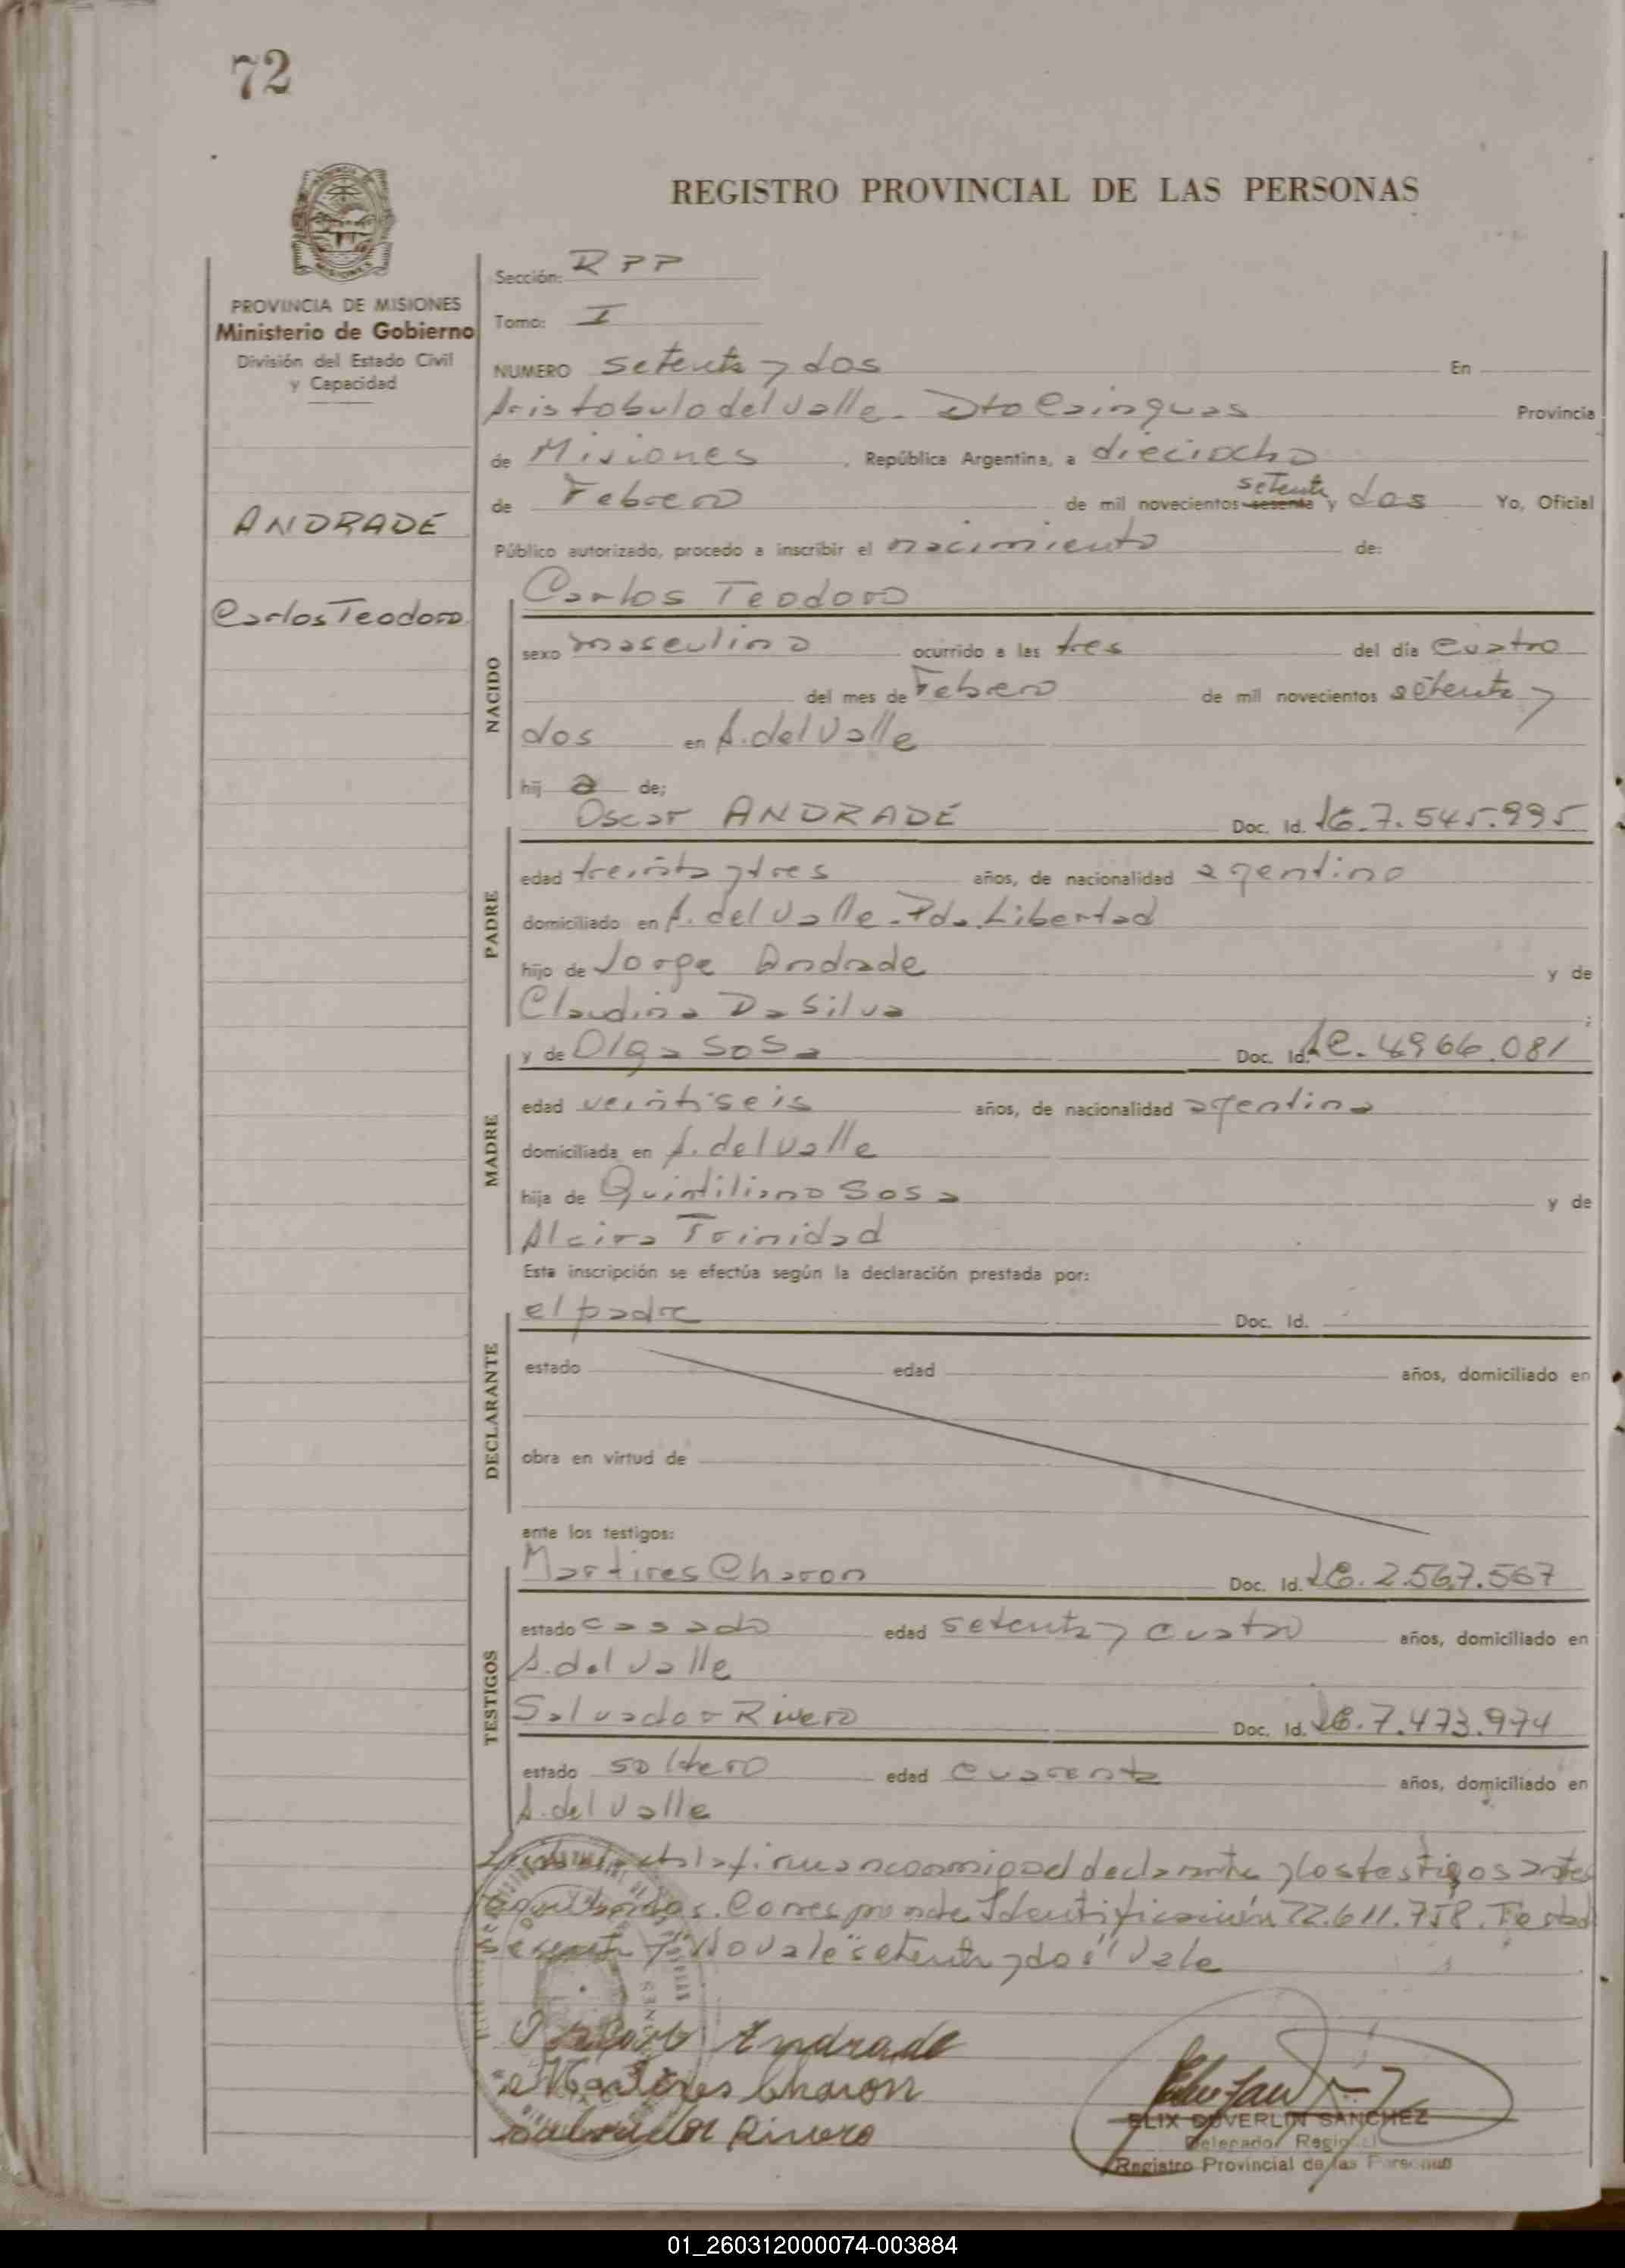 72
REGISTRO PROVINCIAL DE LAS PERSONAS
PROVINCIA DE MISIONES
Ministerio de Gobierno
División del Estado Civil
y Capacidad
ANDRADE
Carlos Teodoro
Sección: RPP
Tomo: I
NUMERO setenta y dos En
Aristobulo del Valle - Dto Cainguas Provincia
de Misiones, República Argentina, a dieciocho
de Febrero de mil novecientos sesenta setenta y dos Yo, Oficial
Público autorizado, procedo a inscribir el nacimiento de:
NACIDO
Carlos Teodoro
sexo masculino ocurrido a las tres del día cuatro
del mes de Febrero de mil novecientos setenta y
dos en A. del Valle
hij a de;
PADRE
Oscar ANDRADE Doc. Id. 7.545.995
edad treinta y tres años, de nacionalidad agentino
domiciliado en A. del Valle - Pdo. Libertad
hijo de Jorge Andrade y de
Claudina Da Silva
MADRE
y de Olga Sosa Doc. Id. LC. 4966.081
edad veintiseis años, de nacionalidad agentina
domiciliada en A. del Valle
hija de Quintiliano Sosa y de
Alcira Trinidad
Esta inscripción se efectúa según la declaración prestada por:
DECLARANTE
el padre Doc. Id.
estado edad años, domiciliado en
obra en virtud de
ante los testigos:
TESTIGOS
Martires Charon Doc. Id. LE. 2.567.567
estado casado edad setenta y cuatro años, domiciliado en
A. del Valle
Salvador Rivero Doc. Id. LE. 7.473.974
estado soltero edad cuarenta años, domiciliado en
A. del Valle
firman conmigo el declarante y los testigos antes
Corresponde Identificación 22.611.758. Testado
No vale "setenta y dos" Vale
Andrade
Martires Charon
Salvador Rivero
ELIX DUVERLIN SANCHEZ
Delegado Regional
Registro Provincial de las Personas
01_260312000074-003884